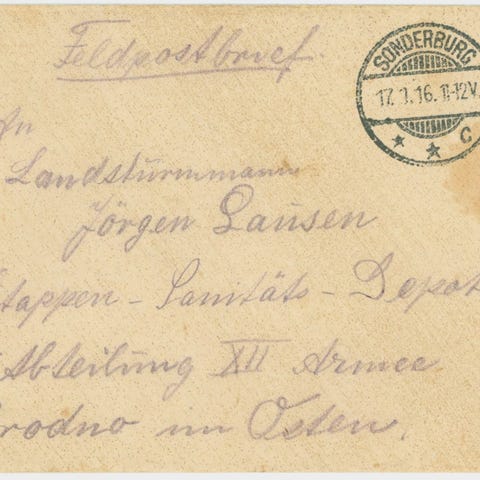 Feldpostbrief.
SONDERBURG
17. 1. 16. 11-12V.
* * C
An
Landsturmmann
Jörgen Lausen
Etappen - Sanitäts - Depot
Abteilung XII Armee
Grodno im Osten.